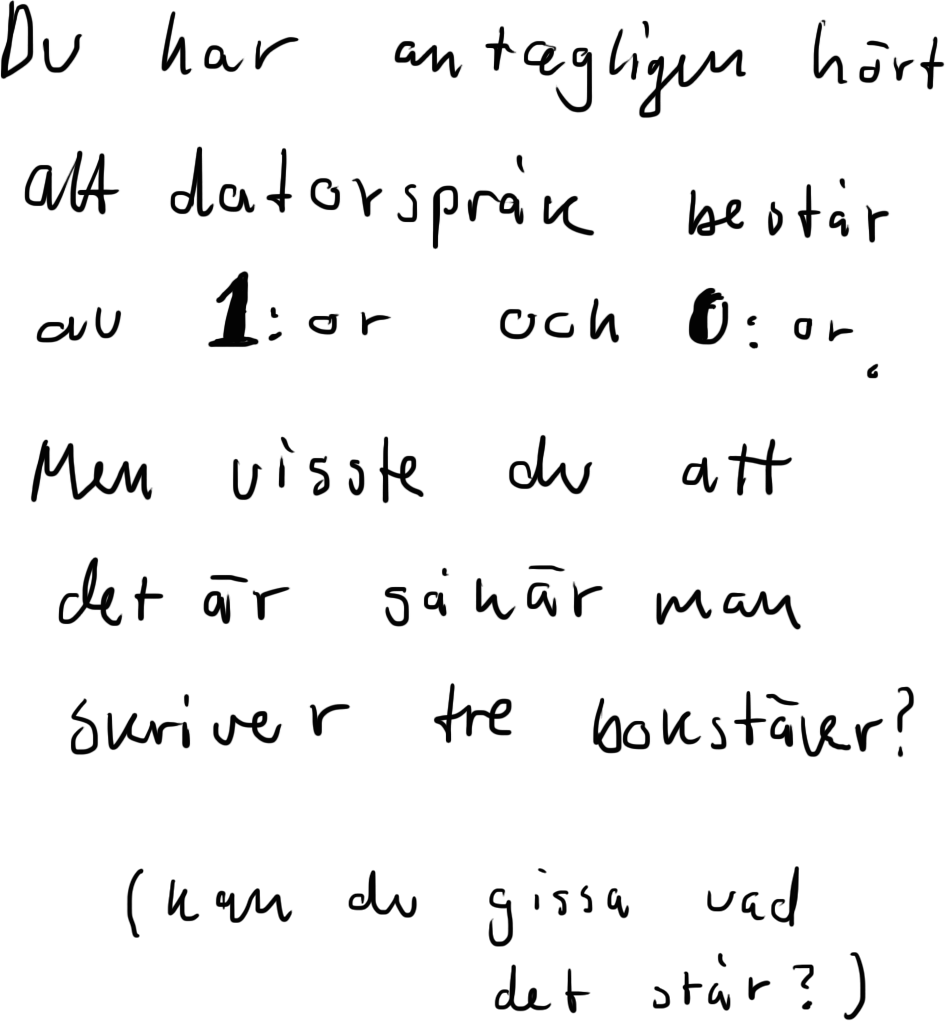 Du har antagligen hört
att datorspråk består
av 1:or och 0:or.
Men visste du att
det är såhär man
skriver tre bokstäver?
(kan du gissa vad
det står?)